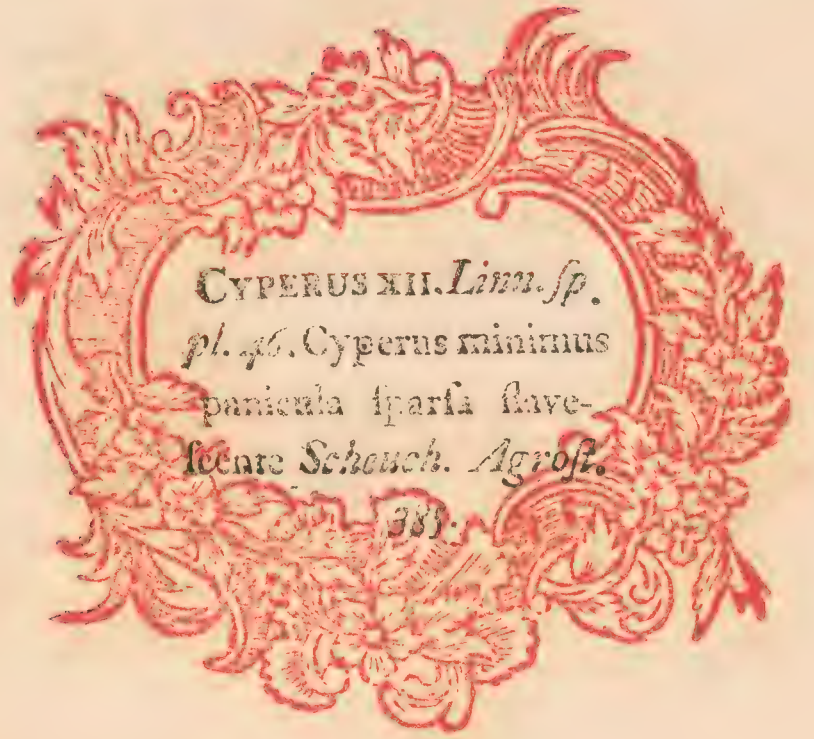 CYPERUS XII. Linn. ſp.
pl. 46. Cyperus minimus
panicula ſparſa flave-
ſcente Scheuch. Agroſt.
385.